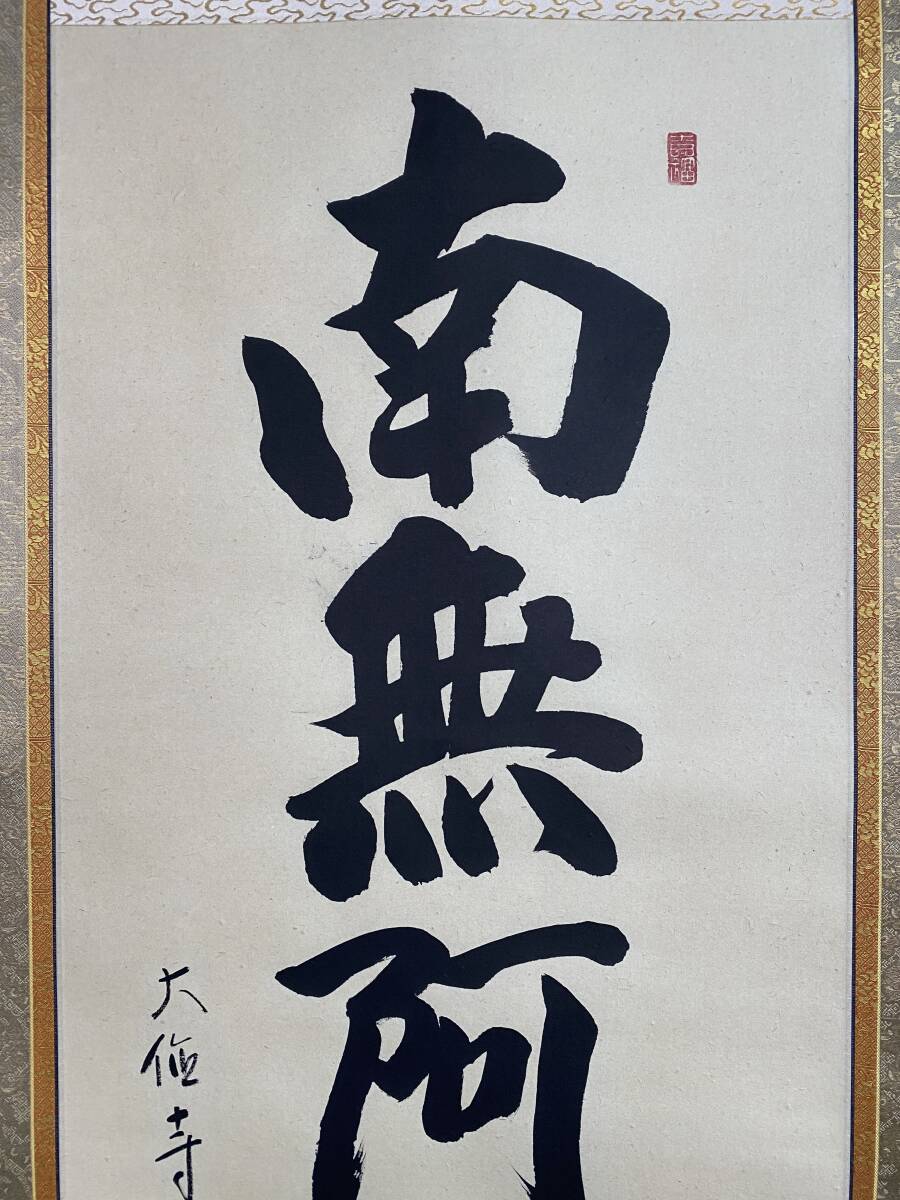 南無阿
大
寺